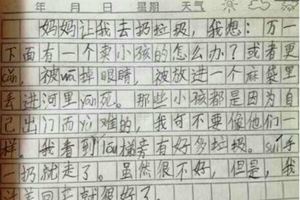 年 月 日 星期 天气
妈妈让我去扔垃圾,我想:万一
下面有一个卖小孩的怎么办?或者更
cǎn,被wā掉眼睛,被放进一个麻袋里
丢进河里yān死。那些小孩都是因为自
己出门而yù难的,我可不要像他们一
样。我看到lóu梯旁有好多垃圾。suí手
一扔就走了。虽然很不好,但是,我
回来就很好了。